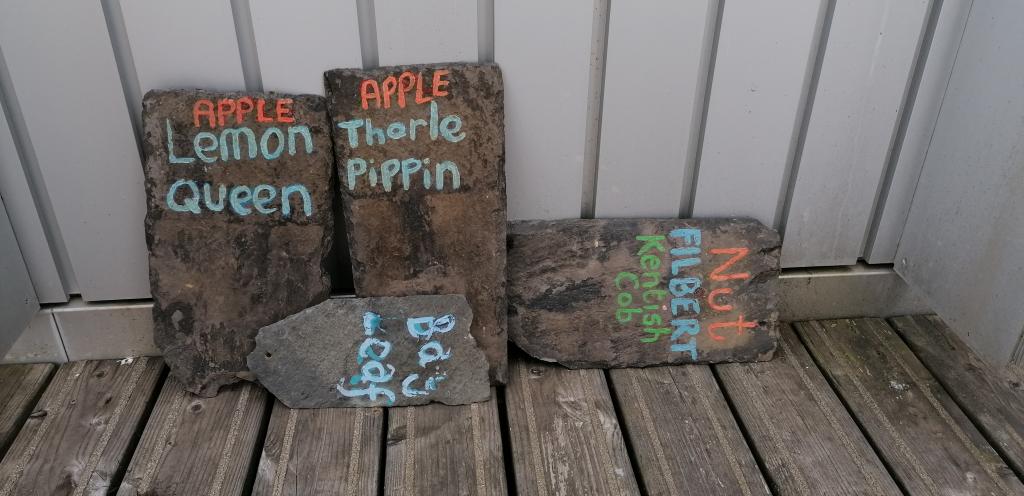 APPLE
Lemon
Queen
APPLE
Thorle
Pippin
Bay
Leaf
Nut
FILBERT
Kentish
Cob